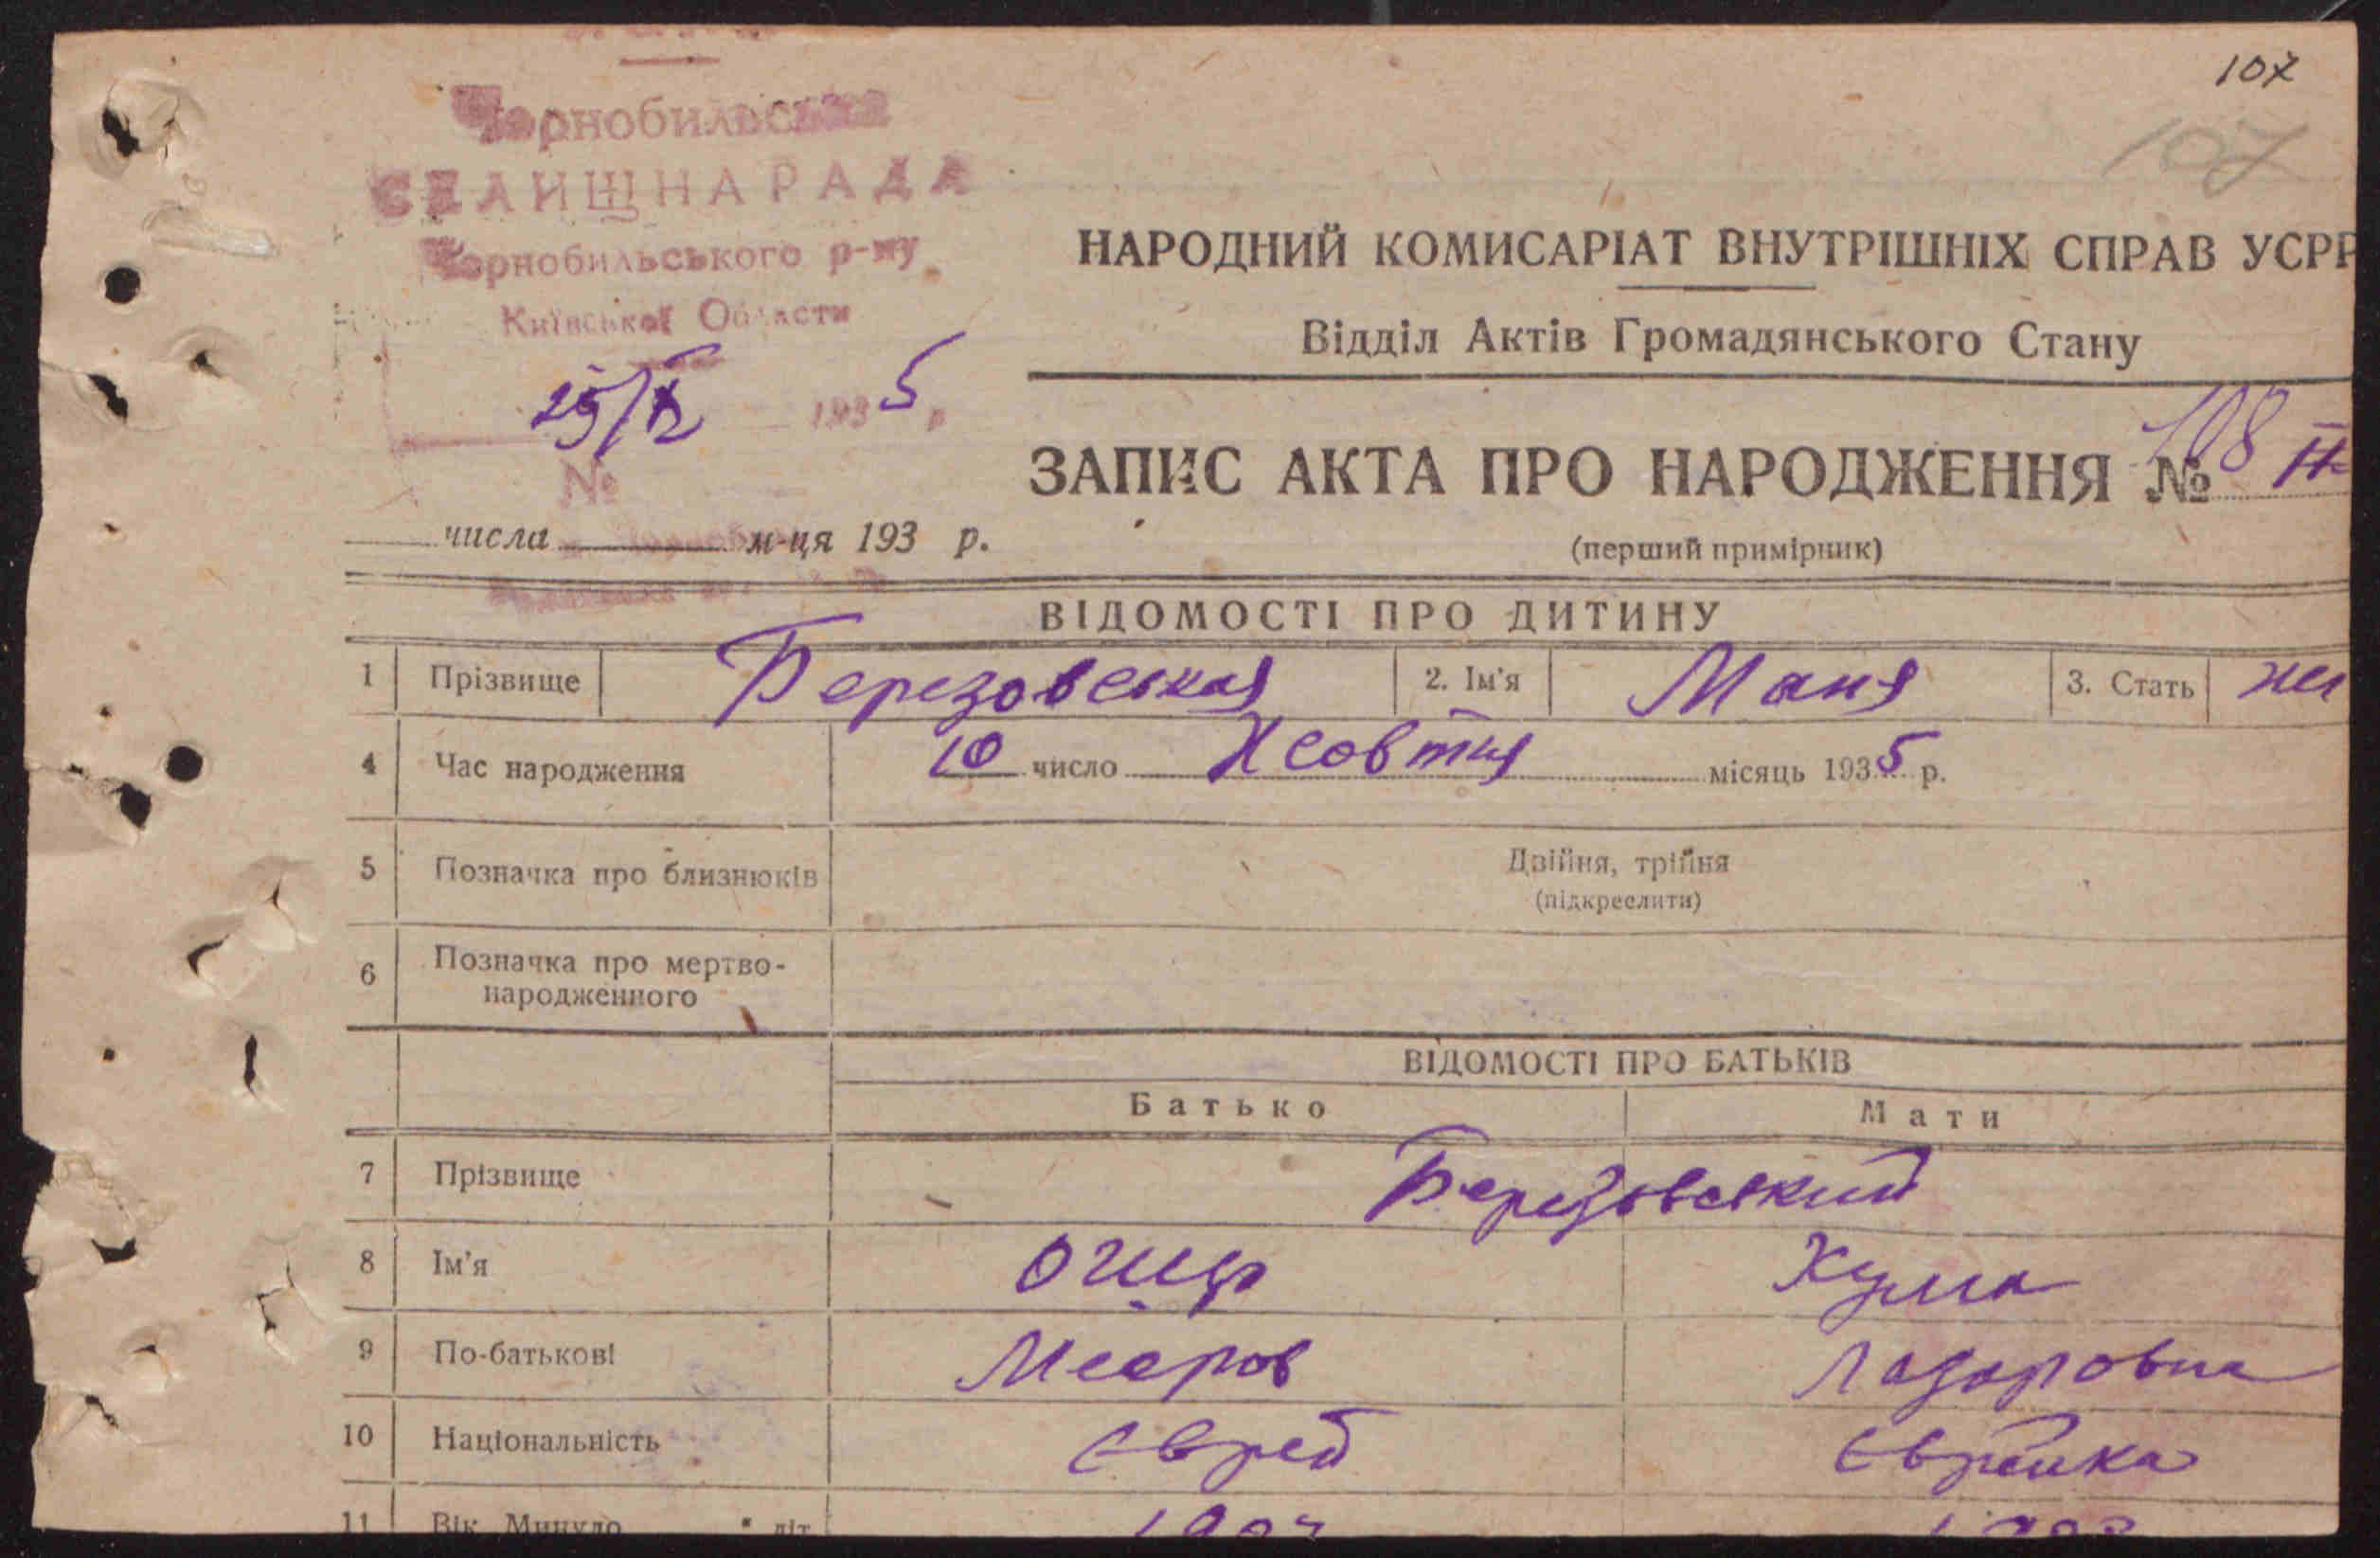 107
107
Чорнобильська
СЕЛИЩНАРАДА
Чорнобильського р-ну
Київської Области
НАРОДНИЙ КОМИСАРІАТ ВНУТРІШНІХ СПРАВ УСРР
Відділ Актів Громадянського Стану
25/X 1935 р
№
ЗАПИС АКТА ПРО НАРОДЖЕННЯ № 108
числа м-ця 193 р.
(перший примірник)
ВІДОМОСТІ ПРО ДИТИНУ
1 Прізвище Березовская 2. Ім'я Маня 3. Стать
4 Час народження 10 число Жовтня місяць 1935 р.
5 Позначка про близнюків Двійня, трійня
(підкреслити)
6 Позначка про мертво-
народженного
ВІДОМОСТІ ПРО БАТЬКІВ
Батько Мати
7 Прізвище Березовский
8 Ім'я
9 По-батькові Мееров Лазаровна
10 Національність Єврей Єврейка
11 Вік Минуло літ